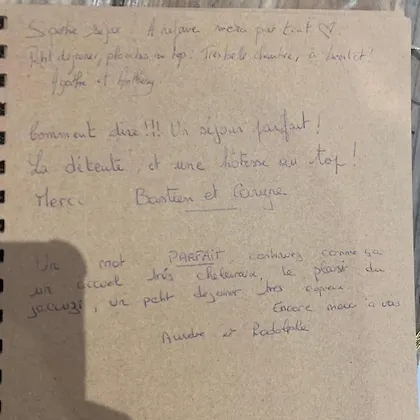 Superbe séjour. A refaire merci pour tout ♡
Petit dejeuner, planches au top! Tres belle chambre, à bientot!
Agathe et Anthony
Comment dire!!! Un séjour parfait!
La détente, et une hôtesse au top!
Merci Bastien et
Un mot PARFAIT, continuez comme ça
un accueil très chaleureux, le plaisir du
jacuzzi, un petit dejeuner très copieux.
Encore merci à vous
Aurelie et Rodolphe